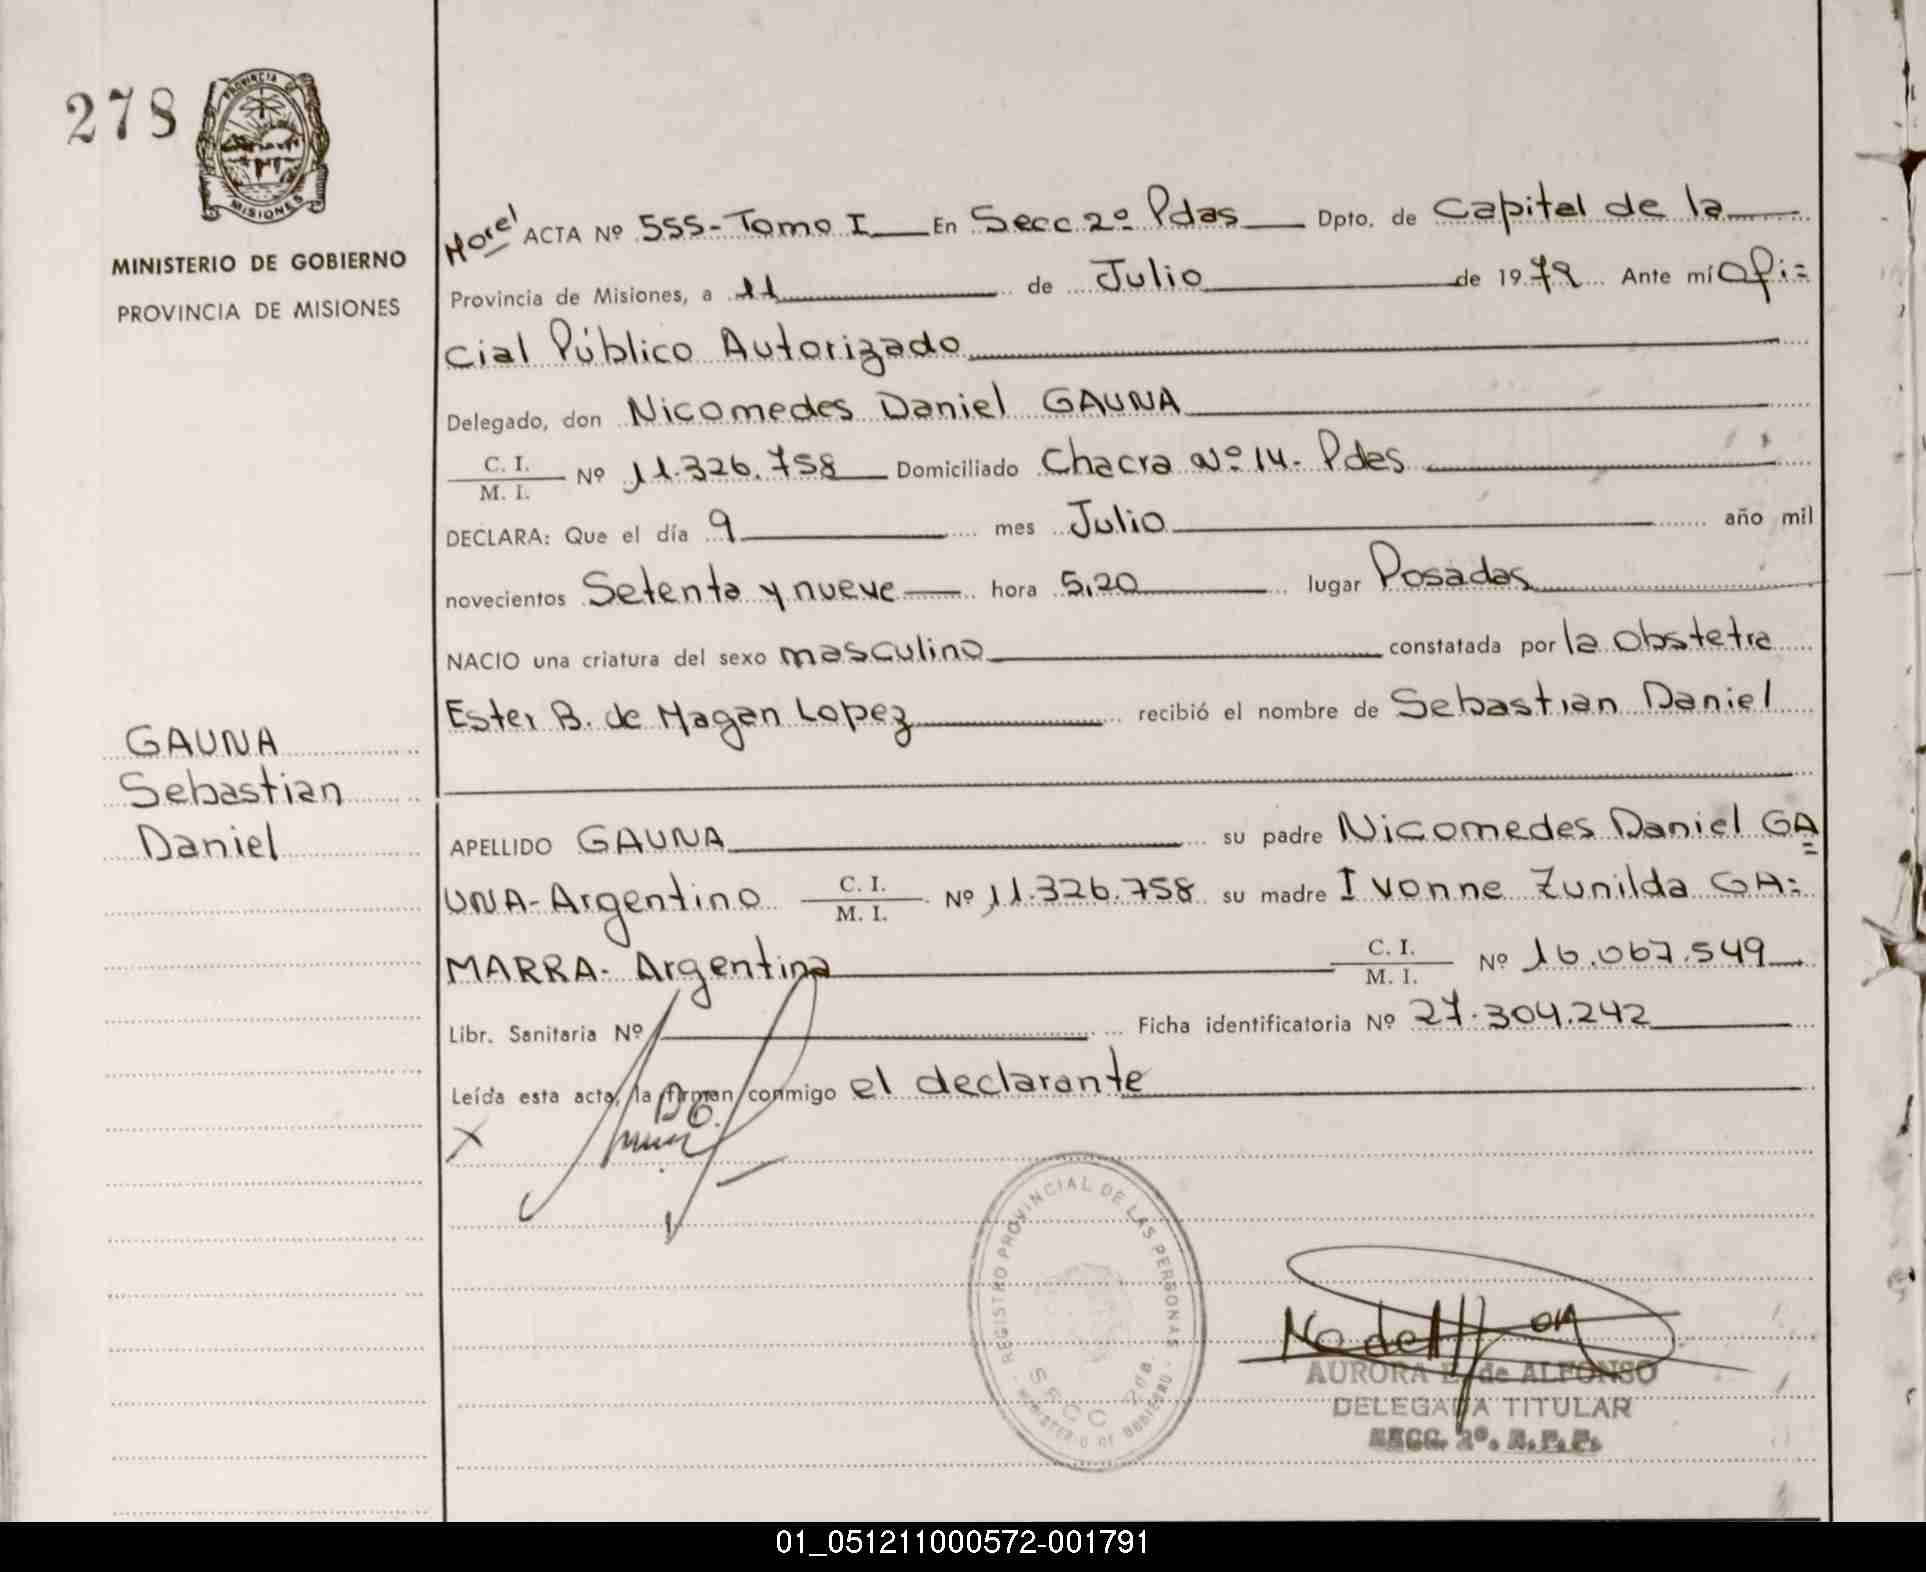 278
PROVINCIA DE
MISIONES
MINISTERIO DE GOBIERNO
PROVINCIA DE MISIONES
GAUNA
Sebastian
Daniel
ACTA Nº 555- Tomo I En Secc 2º Pdas Dpto. de Capital de la
Provincia de Misiones, a 11 de Julio de 1979 Ante mí Ofi=
cial Público Autorizado
Delegado, don Nicomedes Daniel GAUNA
C. I.
M. I. Nº 11.326.758 Domiciliado Chacra Nº 14- Pdas
DECLARA: Que el día 9 mes Julio año mil
novecientos Setenta y nueve hora 5,20 lugar Posadas
NACIO una criatura del sexo masculino constatada por la Obstetra
Ester B. de Magan Lopez recibió el nombre de Sebastian Daniel
APELLIDO GAUNA su padre Nicomedes Daniel GA=
UNA- Argentino C. I. M. I. Nº 11.326.758 su madre Ivonne Zunilda GA=
MARRA- Argentina C. I. M. I. Nº 16.067.549
Libr. Sanitaria Nº Ficha identificatoria Nº 27.304.242
Leída esta acta, la firman conmigo el declarante
X
REGISTRO PROVINCIAL DE LAS PERSONAS
SECC 2da.
MINISTERIO DE GOBIERNO
AURORA de ALFONSO
DELEGADA TITULAR
SECC. 2º. R.P.P.
01_051211000572-001791